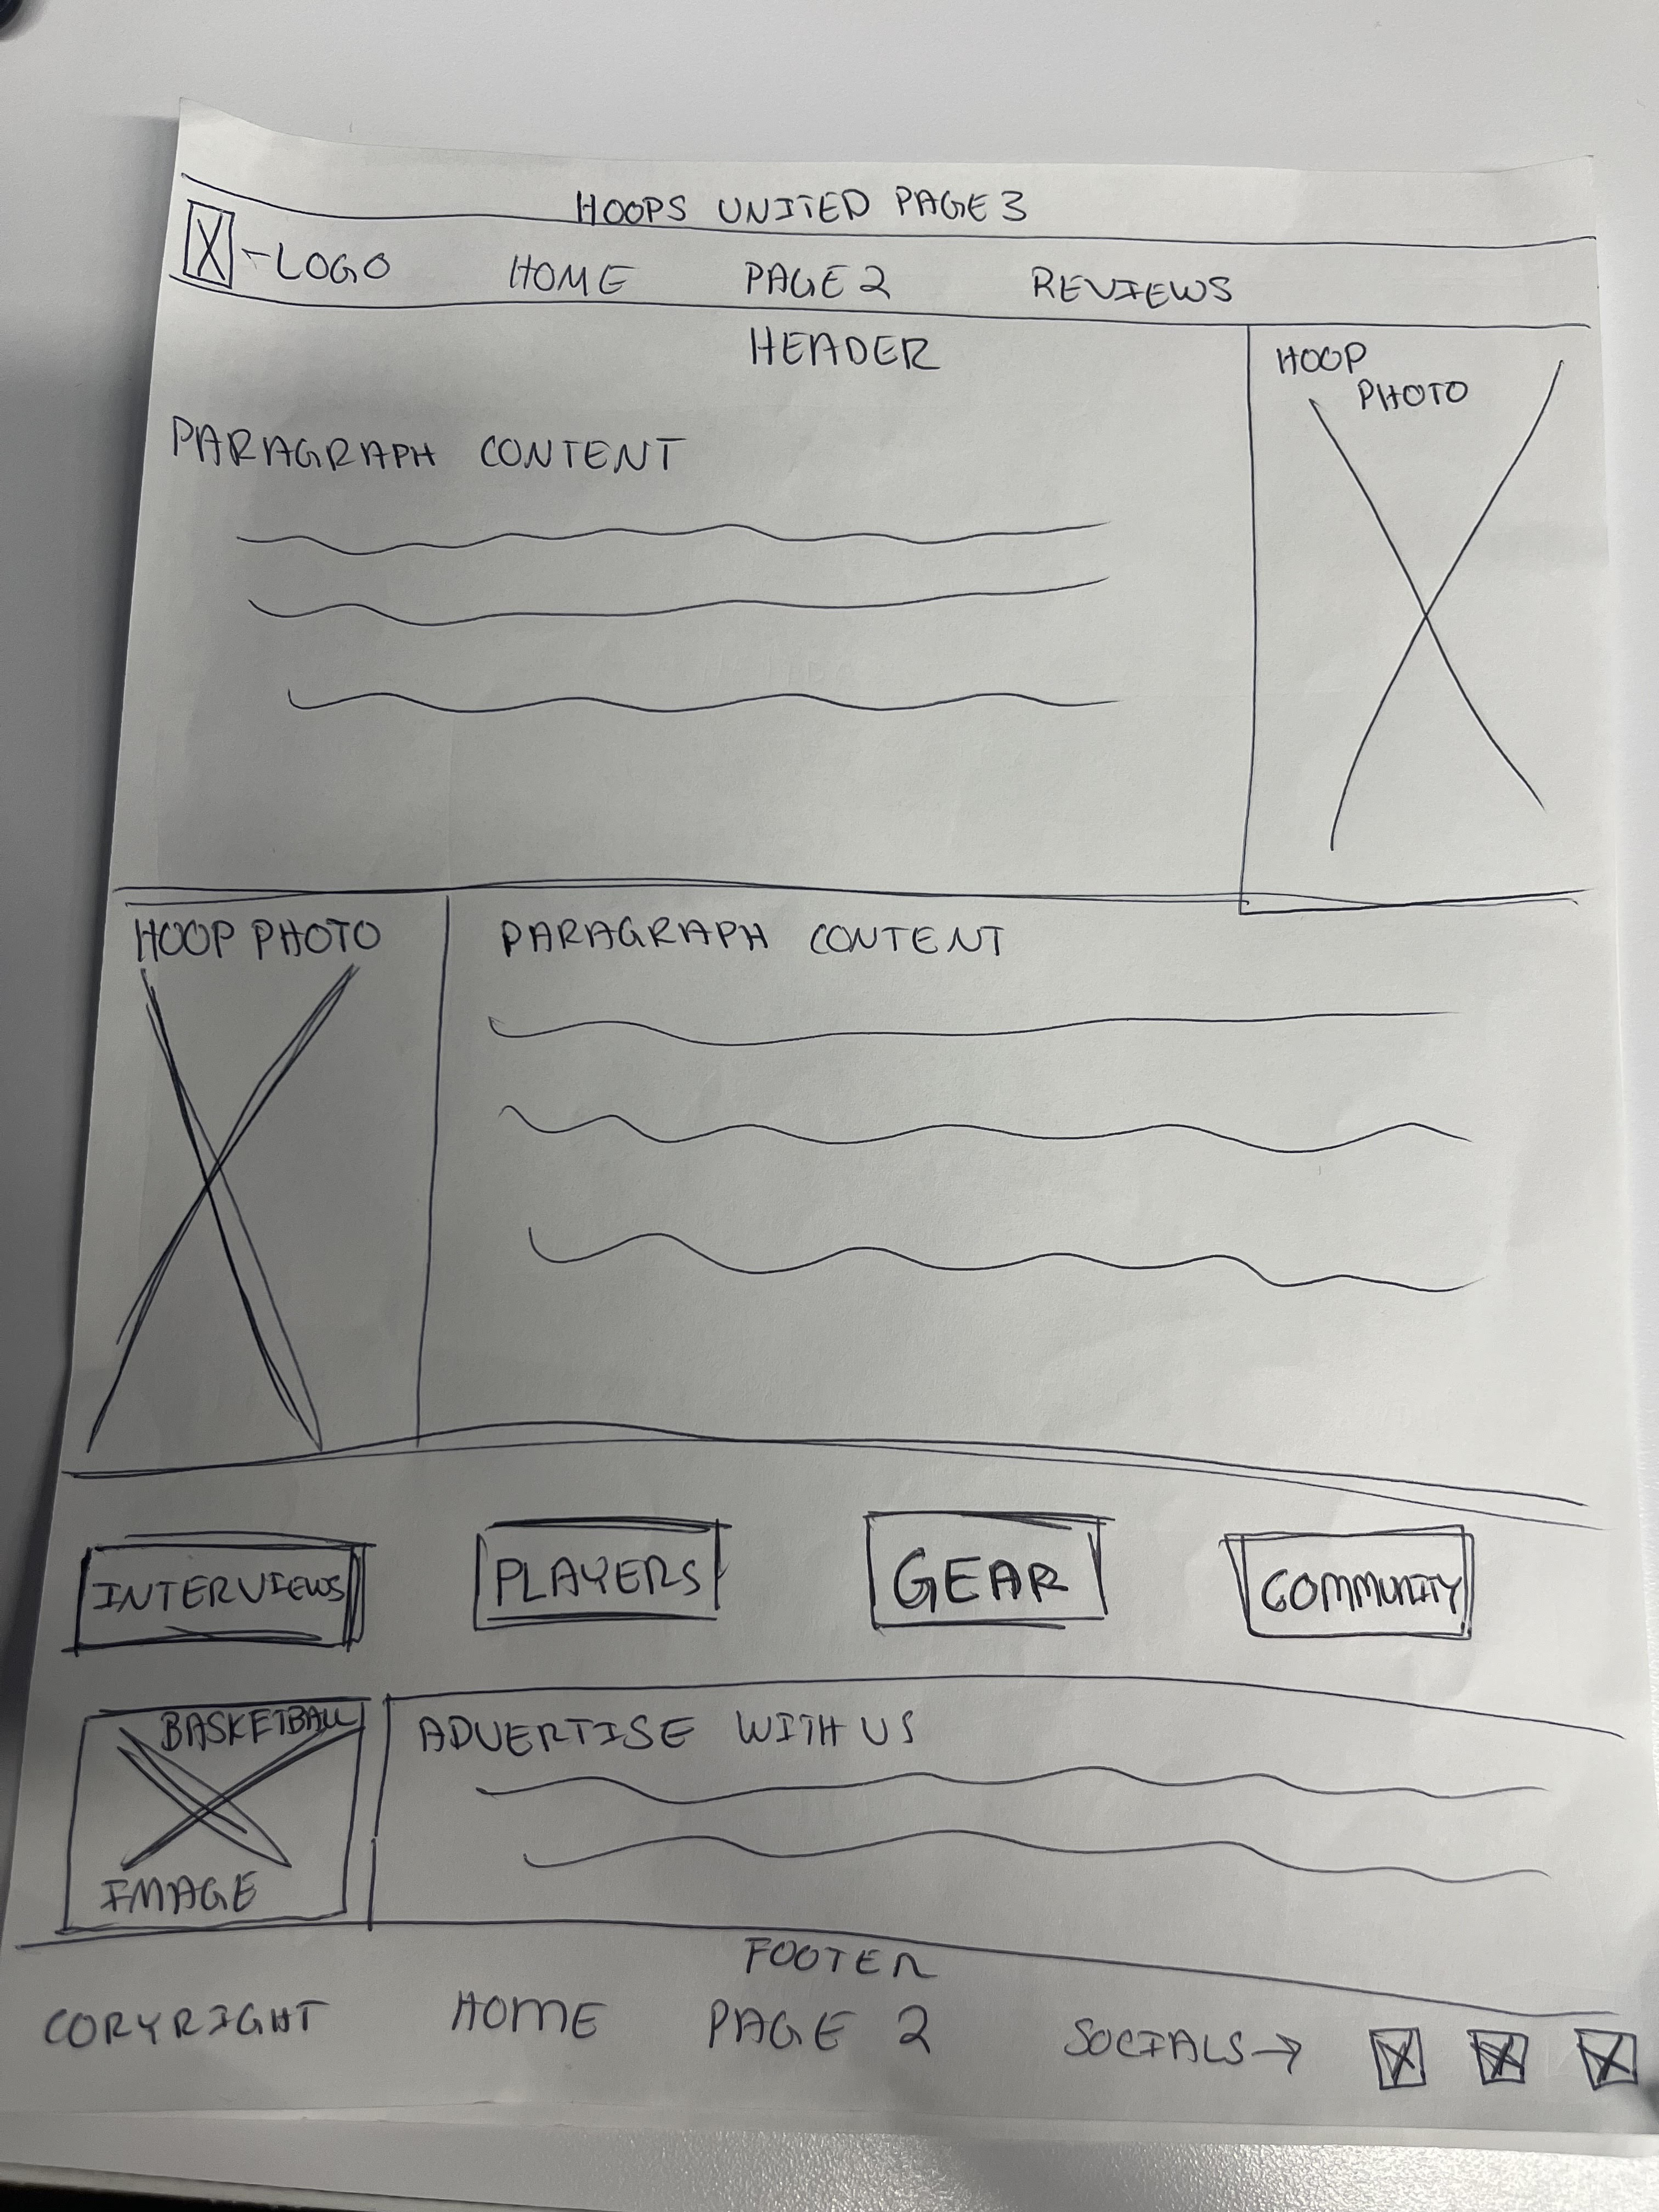 HOOPS UNITED PAGE 3
-LOGO HOME PAGE 2 REVIEWS
HEADER
HOOP
PHOTO
PARAGRAPH CONTENT
HOOP PHOTO
PARAGRAPH CONTENT
INTERVIEWS PLAYERS GEAR COMMUNITY
BASKETBALL
IMAGE
ADVERTISE WITH US
FOOTER
COPYRIGHT HOME PAGE 2 SOCIALS →